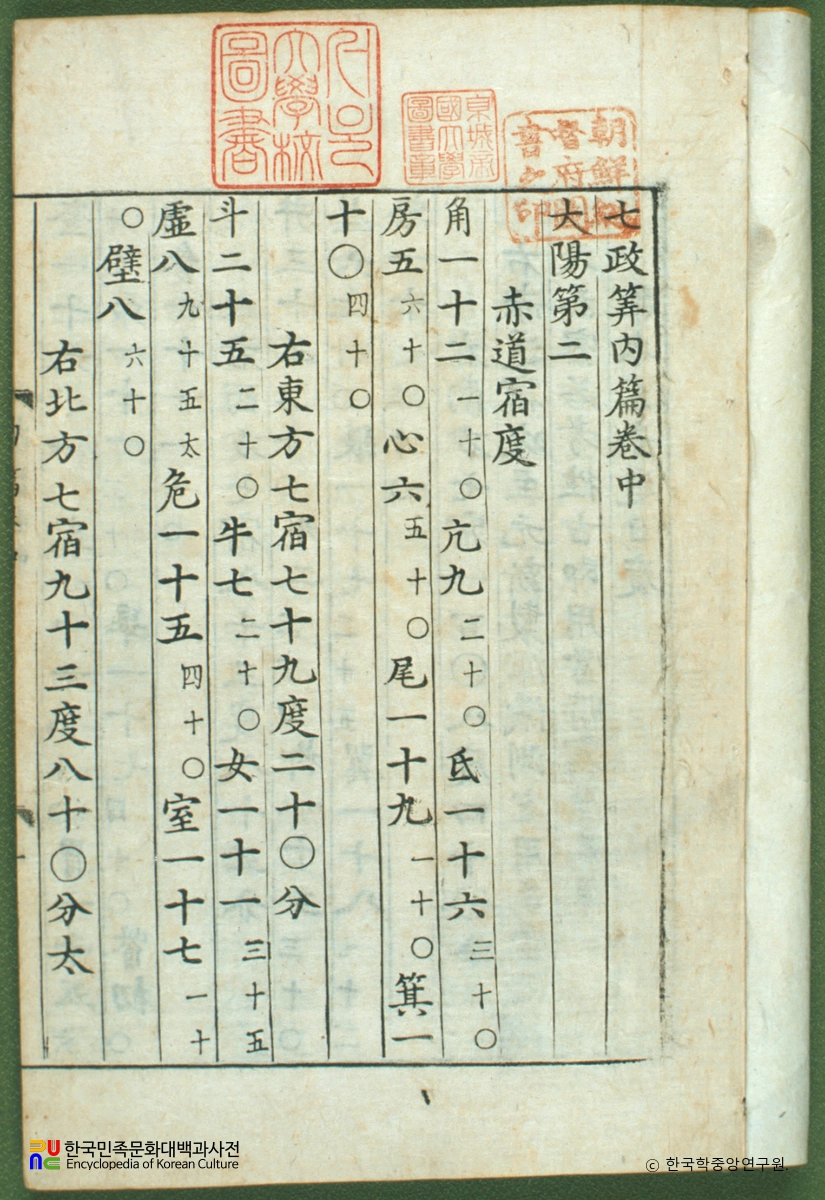 서울
大學校
圖書
京城帝
國大學
圖書章
朝鮮總
督府圖
書之印
七政筭内篇卷中
大陽第二
赤道宿度
角一十二一十〇亢九二十〇氐一十六三十〇
房五六十〇心六五十〇尾一十九一十〇箕一
十〇四十〇
右東方七宿七十九度二十〇分
斗二十五二十〇牛七二十〇女一十一三十五
虛八九十五太危一十五四十〇室一十七一十
〇壁八六十〇
右北方七宿九十三度八十〇分太
한국민족문화대백과사전
Encyclopedia of Korean Culture
© 한국학중앙연구원